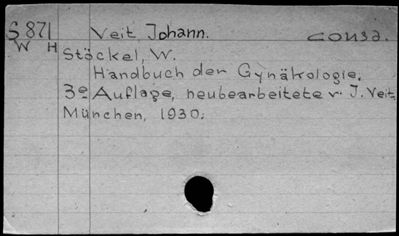 S 871 Veit Johann. consa.
W H
Stöckel, W.
Handbuch der Gynäkologie.
3e Auflage, neubearbeitete v. J. Veit
München, 1930.